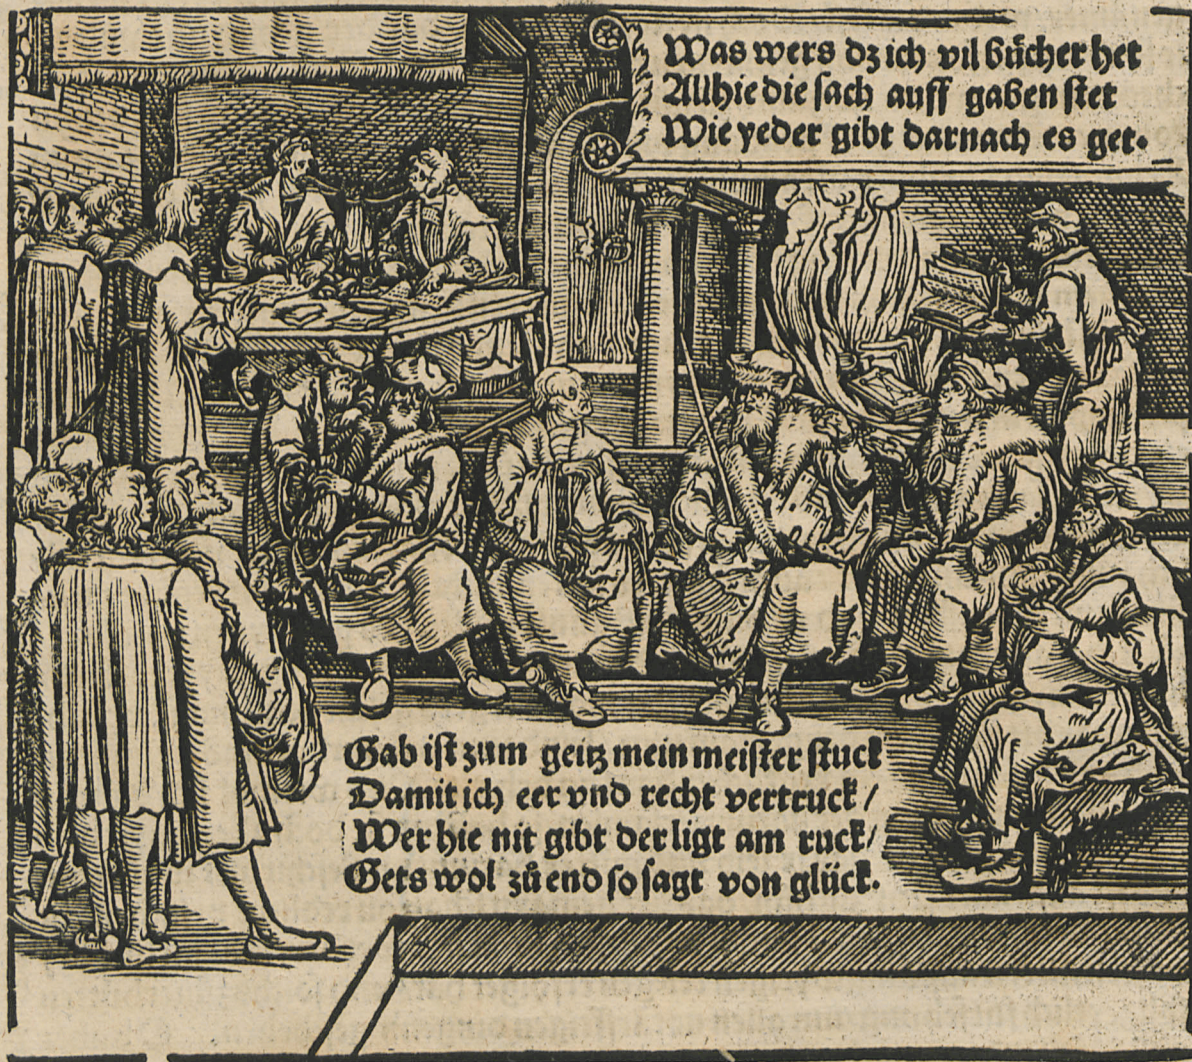 Was wers dz ich vil bücher het
Allhie die sach auff gaben stet
Wie yeder gibt darnach es get.
Gab ist zum geitz mein meister stuck
Damit ich eer vnd recht vertruck /
Wer hie nit gibt der ligt am ruck /
Gets wol zů end so sagt von glück.